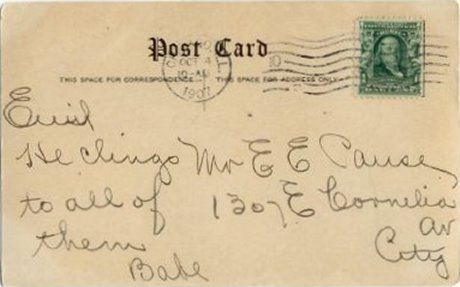 Post Card
THIS SPACE FOR CORRESPONDENCE
THIS SPACE FOR ADDRESS ONLY
OCT 4
10-AM
1907
Enid
He clings
to all of
them
Babe
Mr E E Pause
1307 E Cornelia
av
City